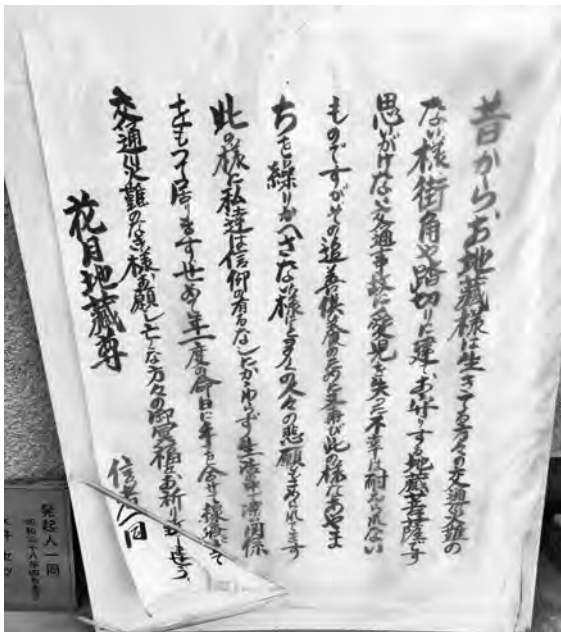 昔からお地蔵様は生きてる方々の交通災難の
ない様街角や踏切りに建てお守りする地蔵菩薩です
思いがけない交通事故に愛児を失た不幸は耐えられない
ものですがその追善供養のために又再び此の様なあやま
ちを繰りかへさない様にと多くの人々の悲願がこめられてます
此の様に私達は信仰の有るなしにかかわらず生活の中に深い関係
をもつて居りますせめて年一度の命日に手を合せて
交通災難のなき様お願し亡くなた方々の御冥福をお祈りしませう
花月地蔵尊
信者一同
発起人一同
昭和二十八年四月